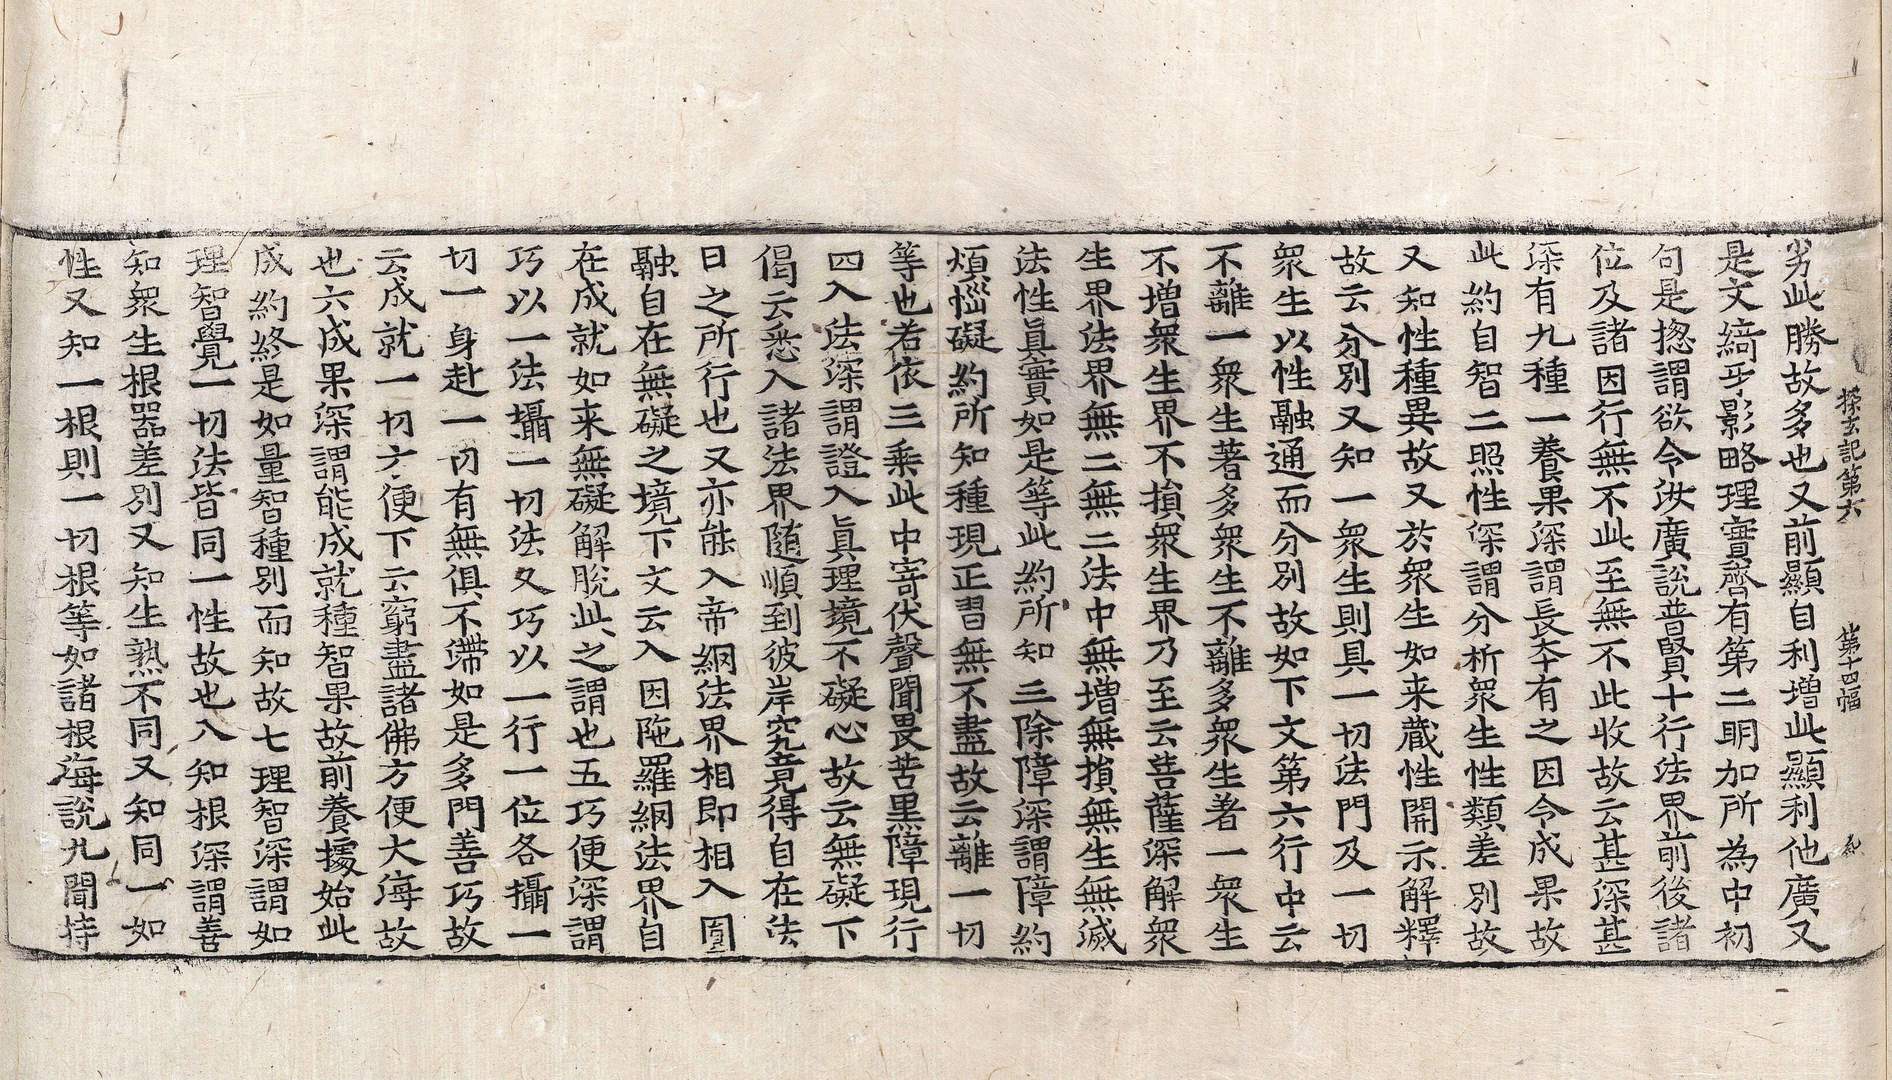 探玄記第六　第十四幅
劣此勝故多也又前顯自利增此顯利他廣又
是文綺牙影略理實齊有第二明加所為中初
句是揔謂欲令汝廣說普賢十行法界前後諸
位及諸因行無不此至無不此收故云甚深甚
深有九種一養果深謂長夲有之因令成果故
此約自智二照性深謂分析衆生性類差別故
又知性種異故又於衆生如来藏性開示解釋
故云分別又知一衆生則具一切法門及一切
衆生以性融通而分別故如下文第六行中云
不離一衆生著多衆生不離多衆生著一衆生
不增衆生界不損衆生界乃至云菩薩深解衆
生界法界無二無二法中無增無損無生無滅
法性真實如是等此約所知三除障深謂障約
煩惱礙約所知種現正習無不盡故云離一切
等也若依三乘此中寄伏聲聞畏苦黒障現行
四入法深謂證入真理境不礙心故云無礙下
偈云悉入諸法界隨順到彼岸究竟得自在法
日之所行也又亦能入帝網法界相即相入圓
融自在無礙之境下文云入因陁羅網法界自
在成就如来無礙解脫此之謂也五巧便深謂
巧以一法攝一切法又巧以一行一位各攝一
切一身赴一切有無俱不滯如是多門善巧故
云成就一切方便下云窮盡諸佛方便大海故
也六成果深謂能成就種智果故前養據始此
成約終是如量智種別而知故七理智深謂如
理智覺一切法皆同一性故也八知根深謂善
知衆生根器差別又知生熟不同又知同一如
性又知一根則一切根等如諸根海說九聞持